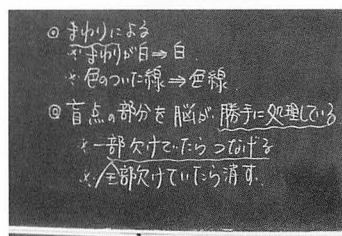 ◎ まわりによる
※ まわりが白⇒白
※ 色のついた線⇒色線
◎ 盲点の部分を脳が、勝手に処理している
※ 一部欠けていたらつなげる
※ 全部欠けていたら消す.